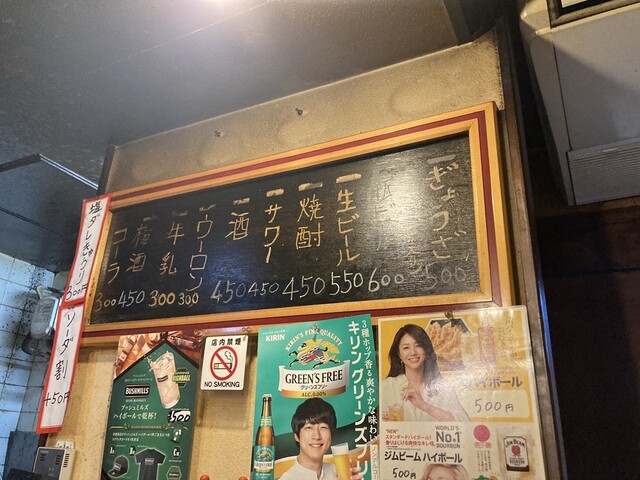 ぎょうざ 500
600
生ビール 550
焼酎 450
サワー 450
酒 450
ウーロン 300
牛乳 300
梅酒 450
コーラ 300
塩ダレきゅうり
300円
ソーダ割
450円
店内禁煙
NO SMOKING
BUSHMILLS
HIGHBALL
ブッシュミルズ
ハイボールで乾杯!
¥500
KIRIN
KIRIN'S FINE QUALITY
GREEN'S FREE
グリーンズフリー
ALC.0.00%
3種ホップ香る爽やかな味わい
キリン グリーンズフリー
ハイボール
500円
"NEW"
WORLD'S
No.1
BOURBON
ジムビーム ハイボール
500円
JIM BEAM